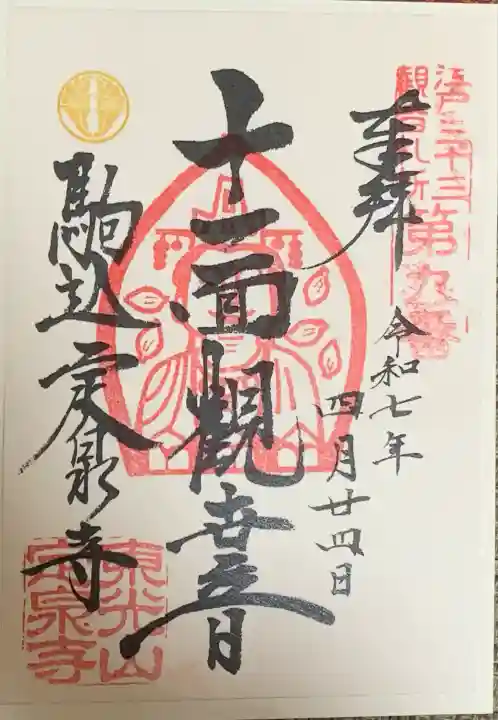 江戸三十三
観音札所
第九番
奉拝
令和七年
四月廿四日
十一面観世音
駒込定泉寺
東光山
定泉寺